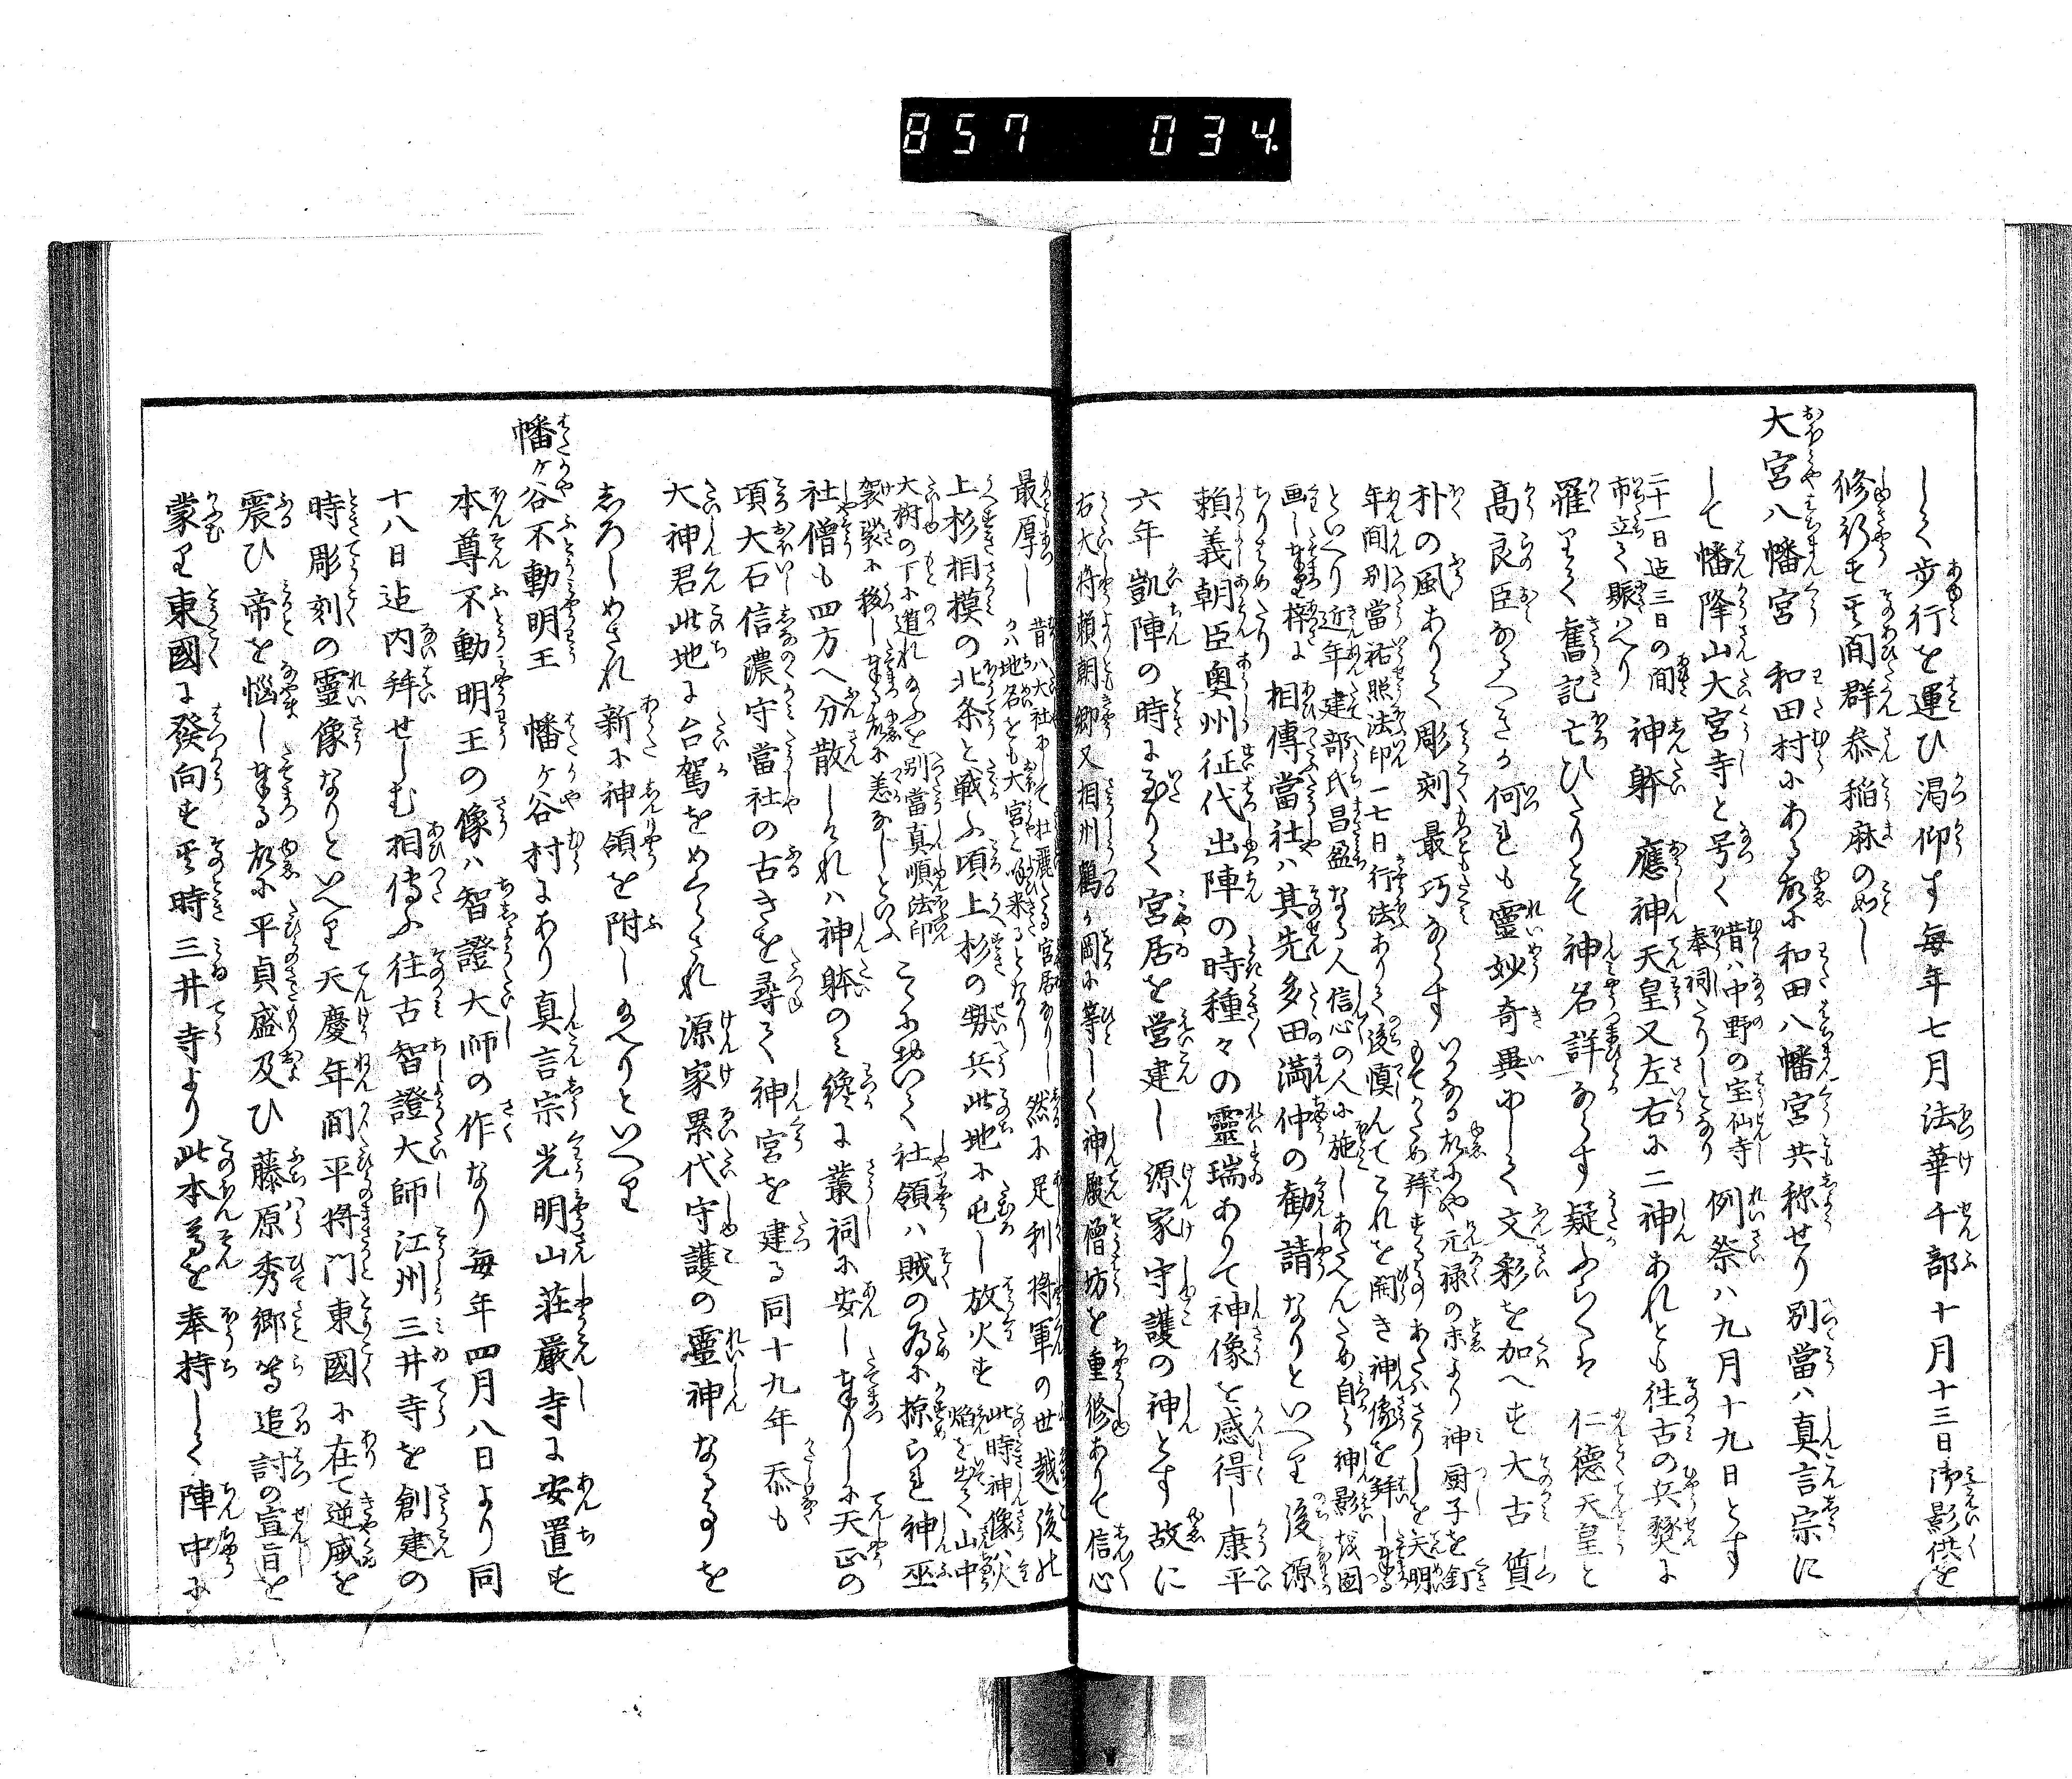 857 034.
しく歩行を運ひ渇仰す毎年七月法華千部十月十三日御影供を
修行す其間群参稲麻の如し
大宮八幡宮 和田村にある故に和田八幡宮共称せり別當ハ真言宗に
して幡降山大宮寺と号く 昔ハ中野の宝仙寺
奉祠たりしとなり 例祭ハ九月十九日とす
二十一日迠三日の間
市立て賑へり 神躰 應神天皇又左右に二神あれとも往古の兵燹に
羅りて舊記亡ひたりとて神名詳ならす疑ふらくは 仁徳天皇と
高良臣なるへきか何れも靈妙奇異にして文彩を加へす大古質
朴の風ありて彫刻最巧ならす いかなる故にや元禄の末より神厨子を釘
もてかため拜することあたハさりしを天明
年間別當祐照法印一七日行法ありて後慎んてこれを開き神像を拜し奉る
といへり近年建部氏昌盈なる人信心の人に施しあたへんため自ら神影を図
画し奉りて梓に
ちりはめたり 相傳當社ハ其先多田満仲の勧請なりといへり後源
頼義朝臣奥州征伐出陣の時種々の靈瑞ありて神像を感得し康平
六年凱陣の時に至りて宮居を営建し源家守護の神とす故に
右大将頼朝卿又相州鶴か岡に等しく神殿僧坊を重修ありて信心
最厚し 昔ハ大社にして壮麗たる宮居なりし
かハ地名をも大宮と呼来るとなり 然に足利将軍の世越後の
上杉相模の北条と戦ふ頃上杉の勢兵此地に屯し放火す 此時神像ハ火
焔を出て山中
大樹の下に遁れ給ふを別當真順法印
袈裟に移し奉る故に恙なしといふ こゝにおいて社領ハ賊の為に掠られ神巫
社僧も四方へ分散しけれハ神躰のミ纔に叢祠に安し奉りしに天正の
頃大石信濃守當社の古きを尋て神宮を建る同十九年忝も
大神君此地に台駕をめくらされ源家累代守護の靈神なる事を
しろしめされ新に神領を附し給へりといへり
幡ヶ谷不動明王 幡ヶ谷村にあり真言宗光明山荘嚴寺に安置す
本尊不動明王の像ハ智證大師の作なり毎年四月八日より同
十八日迠内拜せしむ相傳ふ往古智證大師江州三井寺を創建の
時彫刻の靈像なりといへり天慶年間平将門東國に在て逆威を
震ひ帝を惱し奉る故に平貞盛及ひ藤原秀郷等追討の宣旨を
蒙り東國に發向す其時三井寺より此本尊を奉持して陣中に